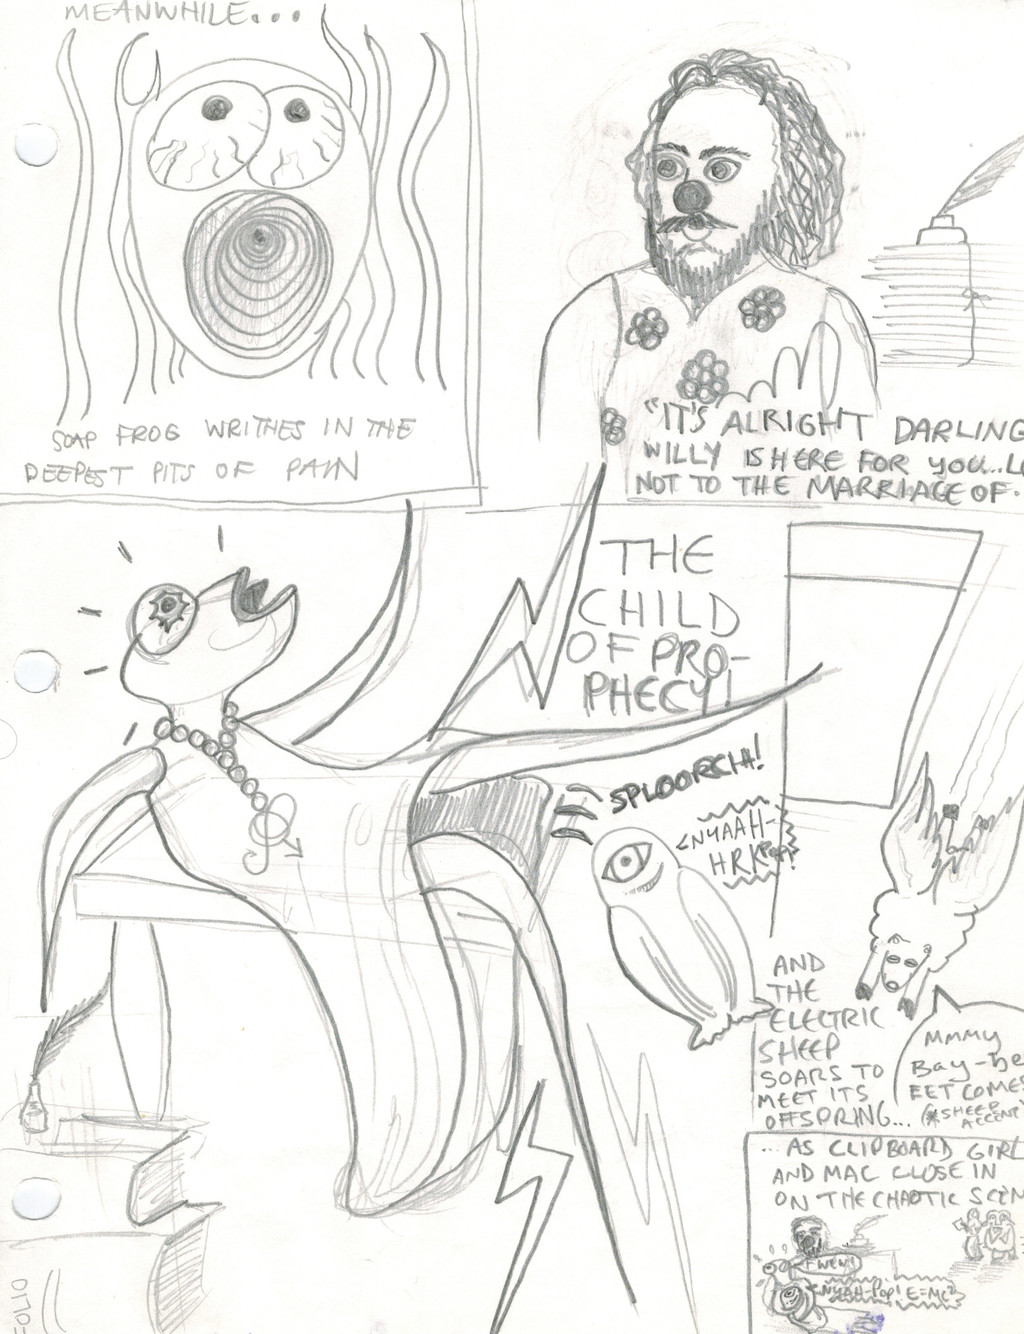 MEANWHILE...
SOAP FROG WRITHES IN THE
DEEPEST PITS OF PAIN
"IT'S ALRIGHT DARLING
WILLY IS HERE FOR YOU...
NOT TO THE MARRIAGE OF.
THE
CHILD
OF PRO-
PHECY!
SPLOORCH!
<NYAAH-
HRK POP!
AND
THE
ELECTRIC
SHEEP
SOARS TO
MEET ITS
OFFSPRING...
MMMY
Bay-be
EET COMES
(*SHEEP
ACCENT)
...AS CLIPBOARD GIRL
AND MAC CLOSE IN
ON THE CHAOTIC SCEN
FWEW!
<NYAH-POP! E=MC²
FOLIO